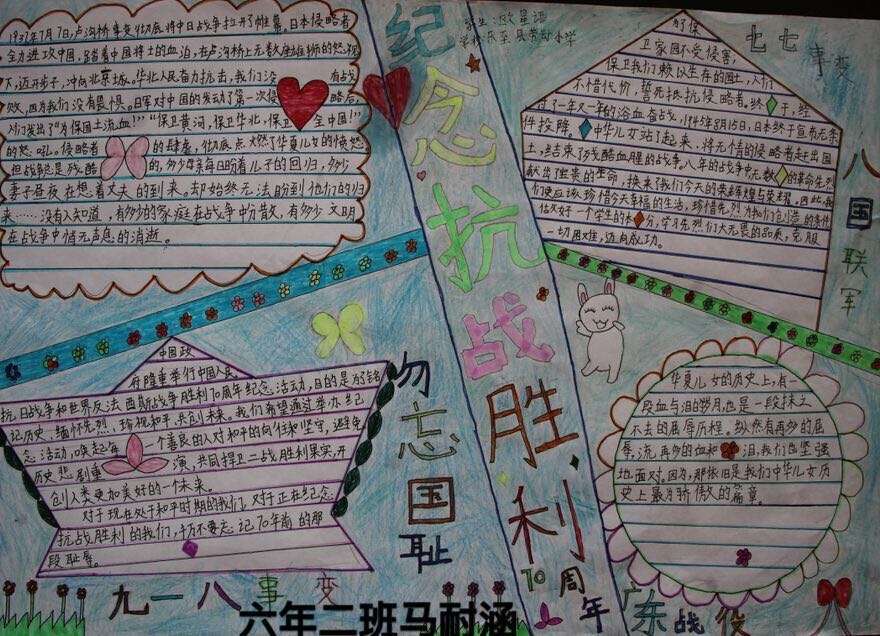 1937年7月7日,卢沟桥事变彻底将中日战争拉开了帷幕。日本侵略者
全力进攻中国,踏着中国将士的血泊,在卢沟桥上无数座雄狮的怒视
下,迈开步子,冲向北京城。华北人民奋力抗击,我们没有战
败,因为我们没有畏惧。日军对中国的发动了第一次侵略后,
人们发出了“为保国土流血!”“保卫黄河,保卫华北,保卫全中国!”
的怒吼。侵略者的肆虐,彻底点燃了华夏儿女的愤怒
但战争总是残酷的,多少母亲每日盼着儿子的回归,多少
妻子昼夜在想着丈夫的到来。却始终无法盼到他们的归
来……没有人知道,有多少的家庭在战争中分散,有多少文明
在战争中悄无声息的消逝。
纪念抗战胜利
70周年
学生:欧星语
学校:乐至县劳动小学
为保
卫家园不受侵害,
保卫我们赖以生存的国土,人们
不惜代价,誓死抵抗侵略者。终于,经
过了一年又一年的浴血奋战,1945年8月15日,日本终于宣布无条
件投降。中华儿女站了起来,将无情的侵略者赶出国
土,结束了残酷血腥的战争。八年的战争中无数的革命先烈
献出了宝贵的生命,换来了我们今天的荣辉煌与荣耀,因此,我
们更应该珍惜今天幸福的生活,珍惜先烈为我们创造的条件
做好一个学生的本分,学习先烈们大无畏的品质,克服
一切困难,迈向成功。
七七事变
八国联军
中国政
府隆重举行中国人民
抗日战争和世界反法西斯战争胜利70周年纪念活动,目的是为铭
记历史、缅怀先烈、珍视和平、共创未来。我们希望通过举办纪
念活动,唤起每一个善良的人对和平的向往和坚守,避免
历史悲剧重演,共同捍卫二战胜利果实,开
创人类更加美好的一个未来。
对于现在处于和平时期的我们,对于正在纪念
抗战胜利的我们,千万不要忘记70年前的那
段耻辱。
勿忘国耻
华夏儿女的历史上,有一
段血与泪的岁月,也是一段抹之
不去的屈辱历程,纵然有再多的屈
辱,流再多的血和泪,我们也坚强
地面对。因为,那依旧是我们中华儿女历
史上最为骄傲的篇章。
九一八事变
六年二班马耐涵
广东战役